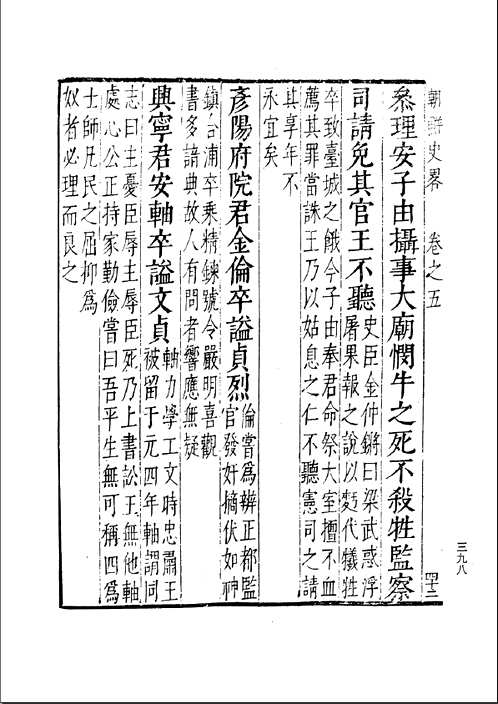 朝鮮史畧
卷之五
四十三
三九八
叅理安子由攝事大廟憫牛之死不殺牲監察
司請免其官王不聽
史臣金仲鏘曰梁武惑浮
屠果報之說以麪代犧牲
卒致臺城之餓今子由奉君命祭大室擅不血
薦其罪當誅王乃以姑息之仁不聽憲司之請
其享年不
永宜矣
彥陽府院君金倫卒謚貞烈
倫嘗爲辨正都監
官發奸擿伏如神
鎮合浦卒乘精鍊號令嚴明喜觀
書多諳典故人有問者響應無疑
興寧君安軸卒謚文貞
軸力學工文時忠肅王
被留于元四年軸謂同
志曰主憂臣辱主辱臣死乃上書訟王無他軸
處心公正持家勤儉嘗曰吾平生無可稱四爲
士師凡民之屈抑爲
奴者必理而良之